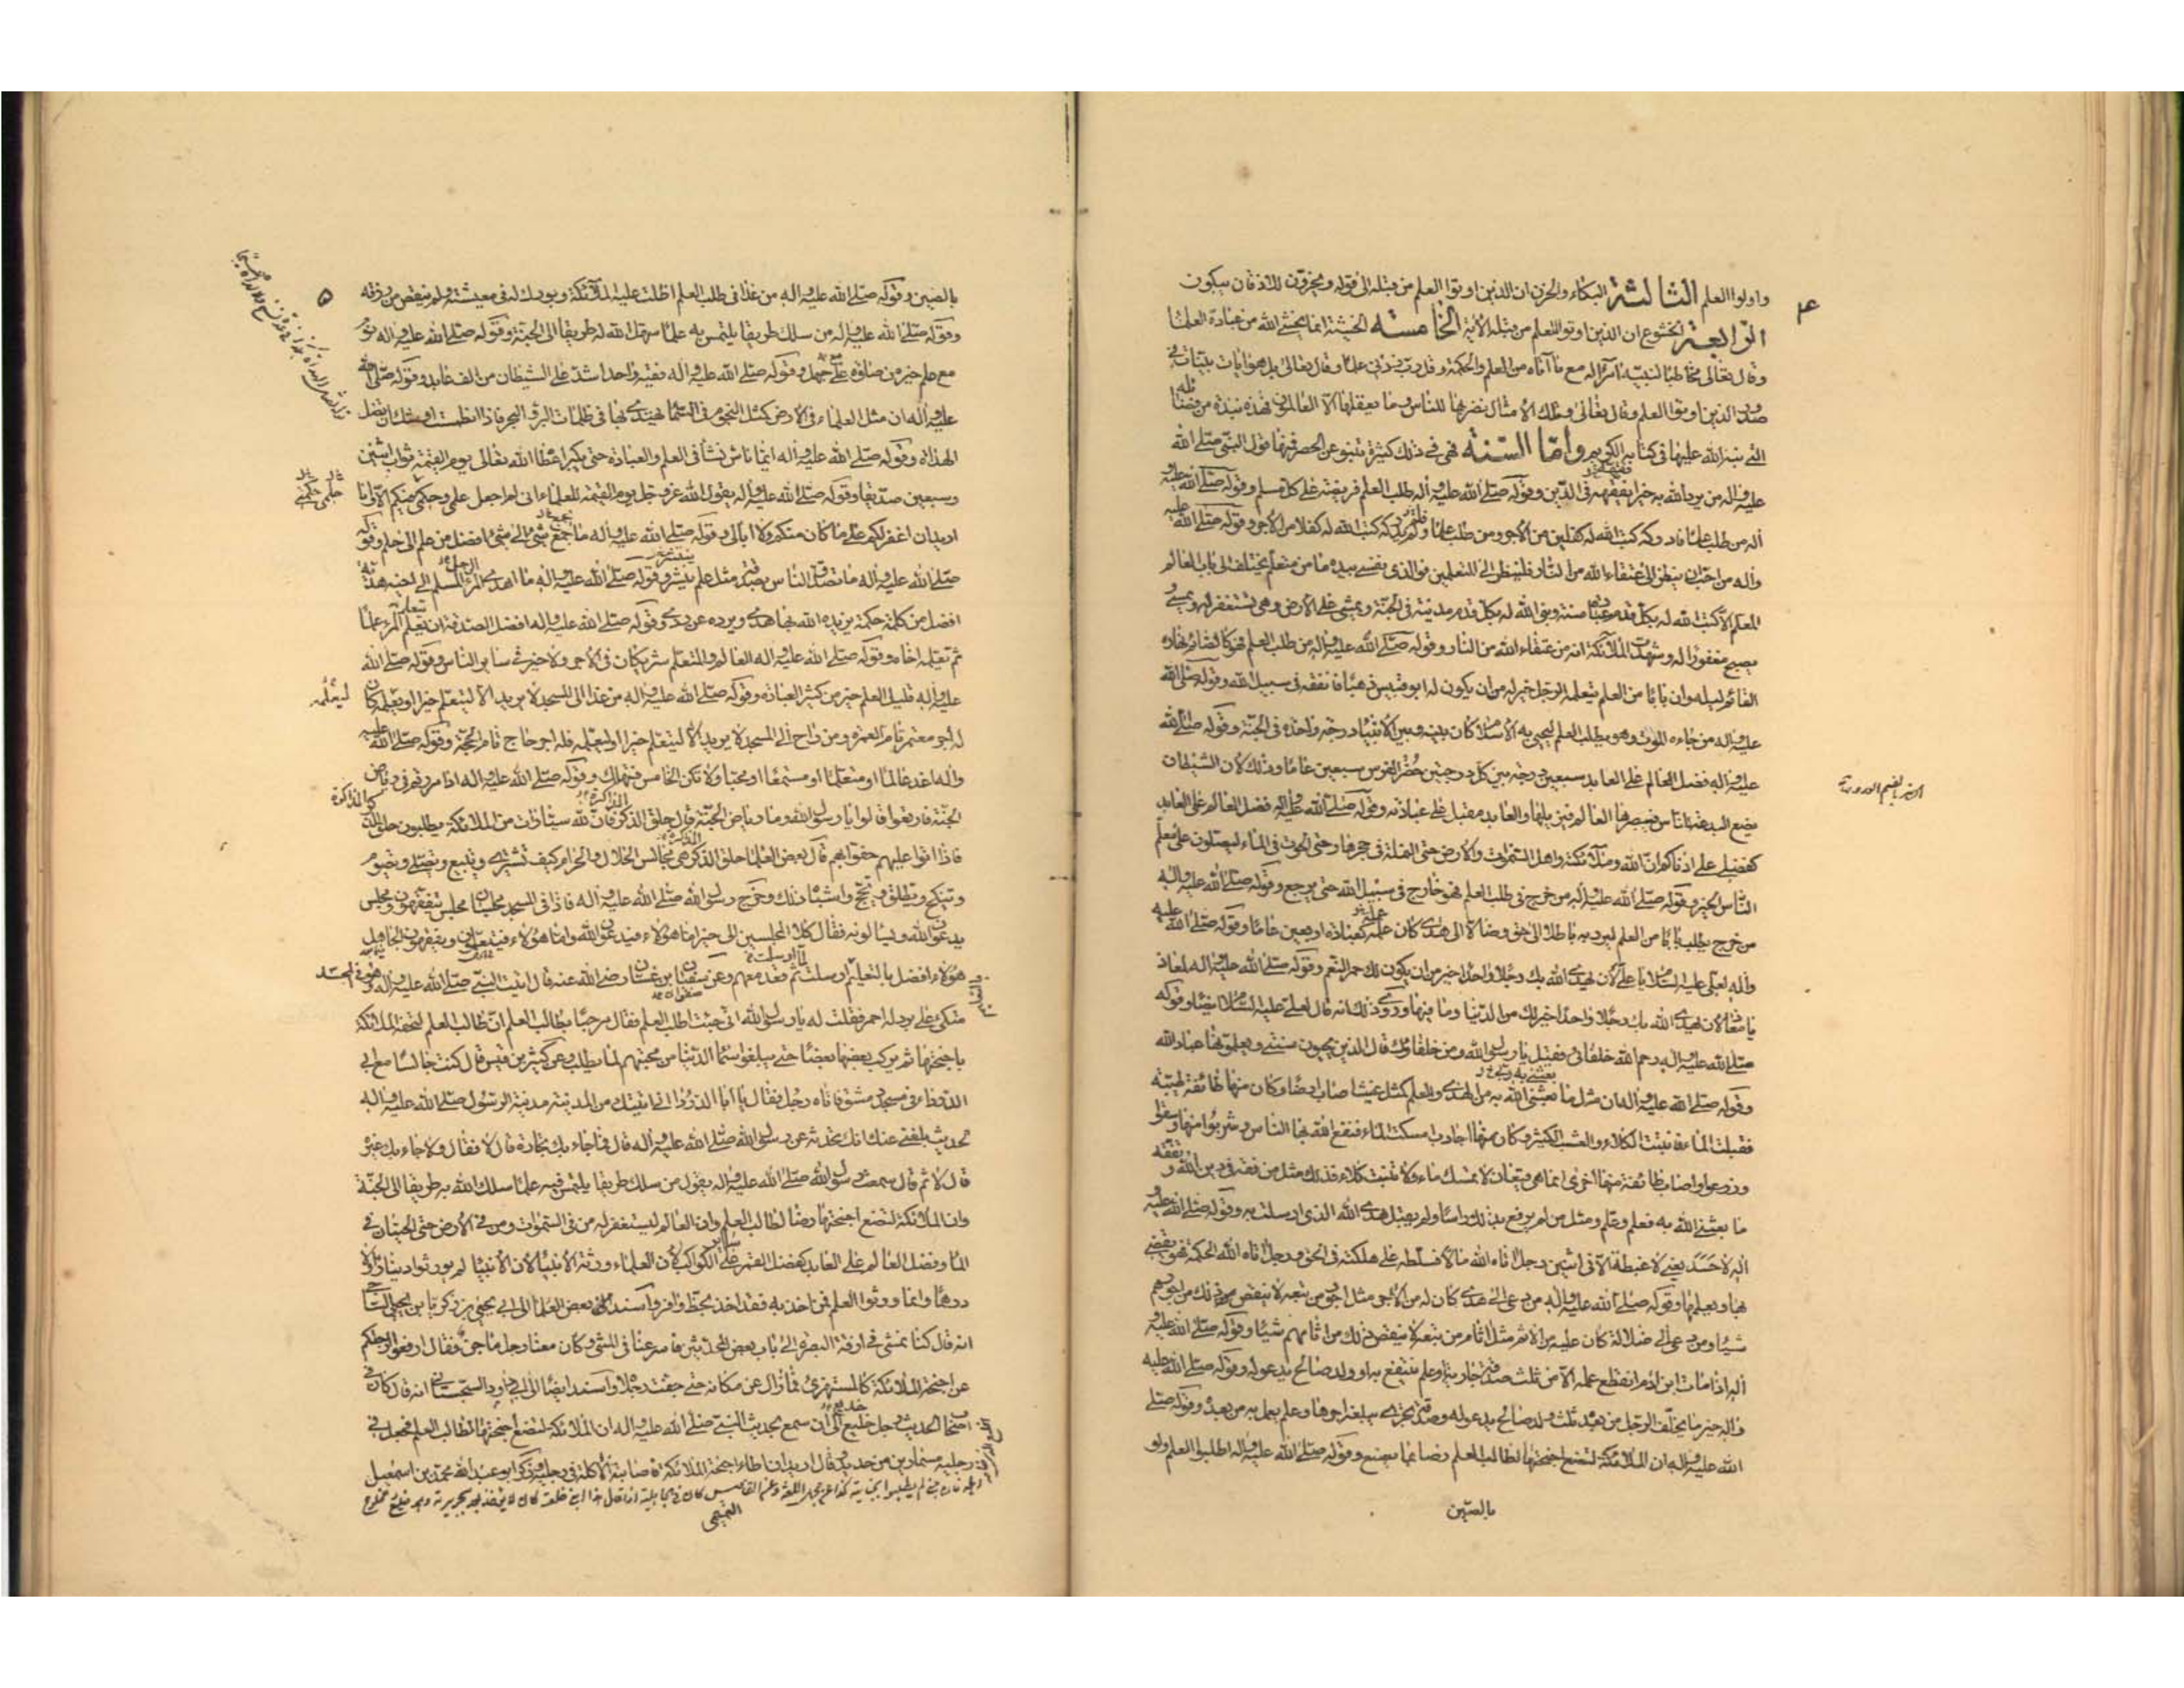 ٤
واولوا العلم الثالثة البكاء والحزن ان الذين اوتوا العلم من قبله الى قوله ويخرون للاذقان يبكون
الرابعة الخشوع ان الذين اوتوا العلم من قبله الآية الخامسة الخشية انما يخشى الله من عباده العلماء
وقال تعالى مخاطبا لنبيه آمرا له مع ما آتاه من العلم والحكمة وقل رب زدني علما وقال تعالى بل هو ايات بينات في
صدور الذين اوتوا العلم وقال تعالى وتلك الامثال نضربها للناس وما يعقلها الا العالمون فهذه نبذة من فضائله
التي نبه الله عليها في كتابه الكريم واما السنة فهي في ذلك كثيرة تنبو عن الحصر فمنها قول النبي صلى الله
عليه واله من يرد الله به خيرا يفقهه في الدين وقوله صلى الله عليه واله طلب العلم فريضة على كل مسلم وقوله صلى الله عليه و
اله من طلب علما فادركه كتب الله له كفلين من الاجر ومن طلب علما فلم يدركه كتب الله له كفلا من الاجر وقوله صلى الله عليه
واله من احب ان ينظر الى عتقاء الله من النار فلينظر الى المتعلمين فوالذي نفسي بيده ما من متعلم يختلف الى باب العالم
المعلم الا كتب الله له بكل قدم عبادة سنة وبنى الله له بكل قدم مدينة في الجنة ويمشي على الارض وهي تستغفر له ويمسي و
يصبح مغفورا له وشهدت الملائكة انه من عتقاء الله من النار وقوله صلى الله عليه واله من طلب العلم فهو كالصائم نهاره
القائم ليله وان بابا من العلم يتعلمه الرجل خير له من ان يكون له ابو قبيس ذهبا فانفقه في سبيل الله وقوله صلى الله
عليه واله من جاءه الموت وهو يطلب العلم ليحيي به الاسلام كان بينه وبين الانبياء درجة واحدة في الجنة وقوله صلى الله
عليه واله فضل العالم على العابد سبعين درجة بين كل درجتين حضر الفرس سبعين عاما وذلك لان الشيطان
يضع البدعة للناس فيبصرها العالم فيزيلها والعابد مقبل على عبادته وقوله صلى الله عليه واله فضل العالم على العابد
كفضلي على ادناكم ان الله وملائكته واهل السموات والارض حتى النملة في جحرها وحتى الحوت في الماء ليصلون على معلم
الناس الخير وقوله صلى الله عليه واله من خرج في طلب العلم فهو خارج في سبيل الله حتى يرجع وقوله صلى الله عليه واله
من خرج يطلب بابا من العلم ليرد به باطلا الى حق وضالا الى هدى كان عمله كعبادة اربعين عاما وقوله صلى الله عليه
واله لعلي عليه السلام يا علي لان يهدي الله بك رجلا واحدا خير من ان يكون لك حمر النعم وقوله صلى الله عليه واله لمعاذ
يا معاذ لان يهدي الله بك رجلا واحدا خير لك من الدنيا وما فيها وروي ذلك انه قال لعلي عليه السلام ايضا وقوله
صلى الله عليه واله رحم الله خلفائي فقيل يا رسول الله ومن خلفاؤك قال الذين يحيون سنتي ويعلمونها عباد الله
وقوله صلى الله عليه واله ان مثل ما بعثني الله به من الهدى والعلم كمثل غيث اصاب ارضا وكان منها طائفة طيبة
فقبلت الماء فانبتت الكلاء والعشب الكثير وكان منها اجادب امسكت الماء فنفع الله بها الناس وشربوا منها وسقوا
وزرعوا واصاب طائفة منها اخرى انما هي قيعان لا تمسك ماء ولا تنبت كلاء فذلك مثل من فقه في دين الله وتفقه
ما بعثني الله به فعلم وعلم ومثل من لم يرفع بذلك راسا ولم يقبل هدى الله الذي ارسلت به وقوله صلى الله عليه و
اله لا حسد يعني لا غبطة الا في اثنين رجل اتاه الله مالا فسلطه على هلكته في الحق ورجل اتاه الله الحكمة فهو يقضي
بها ويعلمها وقوله صلى الله عليه واله من دعى الى هدى كان له من الاجر مثل اجور من تبعه لا ينقص ذلك من اجورهم
شيئا ومن دعى الى ضلالة كان عليه من الاثم مثل اثام من تبعه لا ينقص ذلك من اثامهم شيئا وقوله صلى الله عليه و
اله اذا مات ابن ادم انقطع عمله الا من ثلث صدقة جارية او علم ينتفع به او ولد صالح يدعو له وقوله صلى الله عليه
واله خير ما يخلف الرجل من بعده ثلث ولد صالح يدعو له وصدقة تجري يبلغه اجرها وعلم يعمل به من بعده وقوله صلى
الله عليه واله ان الملائكة لتضع اجنحتها لطالب العلم رضا بما يصنع وقوله صلى الله عليه واله اطلبوا العلم ولو
بالصين
٥
بالصين وقوله صلى الله عليه واله من غدا في طلب العلم اظلت عليه الملائكة وبورك له في معيشته ولم ينقص من رزقه
وقوله صلى الله عليه واله من سلك طريقا يلتمس به علما سهل الله له طريقا الى الجنة وقوله صلى الله عليه واله نوم
مع علم خير من صلوة على جهل وقوله صلى الله عليه واله فقيه واحد اشد على الشيطان من الف عابد وقوله صلى الله
عليه واله ان مثل العلماء في الارض كمثل النجوم في السماء يهتدى بها في ظلمات البر والبحر فاذا انطمست اوشك ان يضل
الهداة وقوله صلى الله عليه واله ايما ناش نشأ في العلم والعبادة حتى يكبر اعطاه الله تعالى يوم القيمة ثواب اثنين
وسبعين صديقا وقوله صلى الله عليه واله يقول الله عز وجل يوم القيمة للعلماء اني لم اجعل علمي وحكمي فيكم الا وانا
اريد ان اغفر لكم على ما كان منكم ولا ابالي وقوله صلى الله عليه واله ما جمع شيء الى شيء افضل من علم الى حلم وقوله
صلى الله عليه واله ما تصدق الناس بصدقة مثل علم ينشر وقوله صلى الله عليه واله ما اهدى المرء المسلم الى اخيه هدية
افضل من كلمة حكمة يزيده الله بها هدى ويرده عن ردى وقوله صلى الله عليه واله افضل الصدقة ان يعلم المرء علما
ثم يعلمه اخاه وقوله صلى الله عليه واله العالم والمتعلم شريكان في الاجر ولا خير في سائر الناس وقوله صلى الله
عليه واله قليل العلم خير من كثير العبادة وقوله صلى الله عليه واله من غدا الى المسجد لا يريد الا ليتعلم خيرا او يعلمه كان
له اجر معتمر تام العمرة ومن راح الى المسجد لا يريد الا ليتعلم خيرا او ليعلمه فله اجر حاج تام الحجة وقوله صلى الله عليه
واله اغد عالما او متعلما او مستمعا او محبا ولا تكن الخامس فتهلك وقوله صلى الله عليه واله اذا مررتم في رياض
الجنة فارتعوا قالوا يا رسول الله وما رياض الجنة قال حلق الذكر فان لله سيارات من الملائكة يطلبون حلق الذكر
فاذا اتوا عليهم حفوا بهم قال بعض العلماء حلق الذكر هي مجالس الحلال والحرام كيف تشتري وتبيع وتصلي وتصوم
وتنكح وتطلق وتحج واشباه ذلك وخرج رسول الله صلى الله عليه واله فاذا في المسجد مجلسان مجلس يتفقهون ومجلس
يدعون الله ويسالونه فقال كلا المجلسين الى خير اما هؤلاء فيدعون الله واما هؤلاء فيتعلمون ويفقهون الجاهل
هؤلاء افضل بالتعليم ارسلت ثم قعد معهم وعن صفوان بن غسان رضي الله عنه قال اتيت النبي صلى الله عليه واله وهو في المسجد
متكئ على برد له احمر فقلت له يا رسول الله اني جئت اطلب العلم فقال مرحبا بطالب العلم ان طالب العلم لتحفه الملائكة
باجنحتها ثم يركب بعضها بعضا حتى يبلغوا سماء الدنيا من محبتهم لما يطلب وعن كثير بن قيس قال كنت جالسا مع ابي
الدرداء في مسجد دمشق فاتاه رجل فقال يا ابا الدرداء اني اتيتك من المدينة مدينة الرسول صلى الله عليه واله
لحديث بلغني عنك انك تحدثه عن رسول الله صلى الله عليه واله قال فما جاء بك تجارة قال لا قال ولا جاء بك غيره
قال لا ثم قال سمعت رسول الله صلى الله عليه واله يقول من سلك طريقا يلتمس فيه علما سلك الله به طريقا الى الجنة
وان الملائكة لتضع اجنحتها رضا لطالب العلم وان العالم ليستغفر له من في السموات ومن في الارض حتى الحيتان في
الماء وفضل العالم على العابد كفضل القمر على سائر الكواكب ان العلماء ورثة الانبياء ان الانبياء لم يورثوا دينارا ولا
درهما وانما ورثوا العلم فمن اخذ به فقد اخذ بحظ وافر واسند بعض العلماء الى ابي يحيى زكريا بن يحيى الساجي
انه قال كنا نمشي في ازقة البصرة الى باب بعض المحدثين فاسرعنا في المشي وكان معنا رجل ماجن فقال ارفعوا ارجلكم
عن اجنحة الملائكة كالمستهزئ فما زال عن مكانه حتى جفت رجلاه واسند ايضا الى ابي داود السجستاني انه قال كان في
اصحاب الحديث رجل خليع الى ان سمع بحديث النبي صلى الله عليه واله ان الملائكة لتضع اجنحتها لطالب العلم فجعل في
رجليه مسمارين من حديد وقال اريد ان اطاء اجنحة الملائكة فاصابته الاكلة في رجليه وذكر ابو عبد الله محمد بن اسمعيل
التميمي
ليعلمه